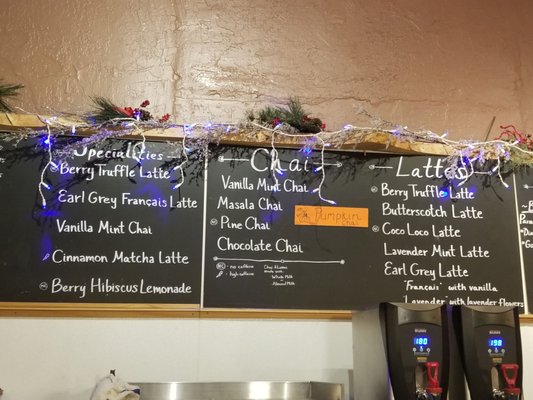 Specialties
Berry Truffle Latte
Earl Grey Français Latte
Vanilla Mint Chai
Cinnamon Matcha Latte
Berry Hibiscus Lemonade
Chai
Vanilla Mint Chai
Masala Chai
Pine Chai
Chocolate Chai
Pumpkin
Chai
- no caffeine
- high caffeine
Chai Lattes
made with
Whole Milk
or
Almond Milk
Lattes
Berry Truffle Latte
Butterscotch Latte
Coco Loco Latte
Lavender Mint Latte
Earl Grey Latte
"Français" with vanilla
"Lavender" with lavender flowers
180
198